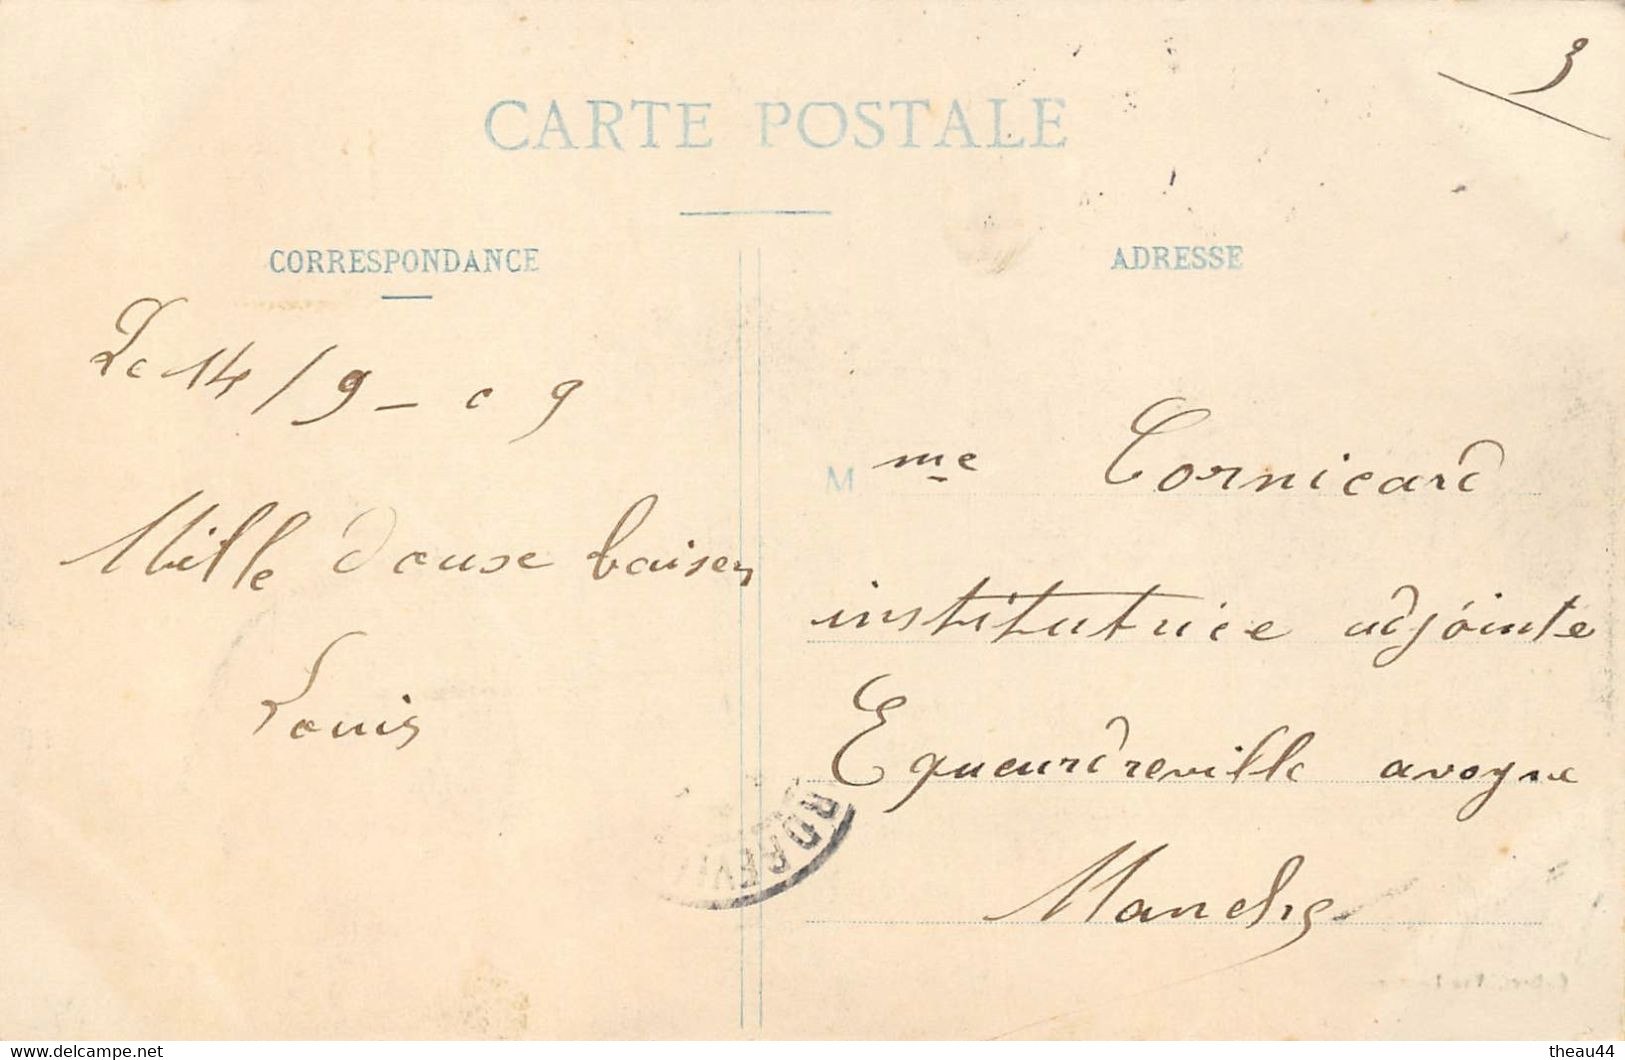 3
CARTE POSTALE
CORRESPONDANCE
Le 14/9-09
Mille doux baisers
Louis
ADRESSE
M me Cornicard
institutrice adjointe
Equeurdreville
Manche
RDREVI
theau44